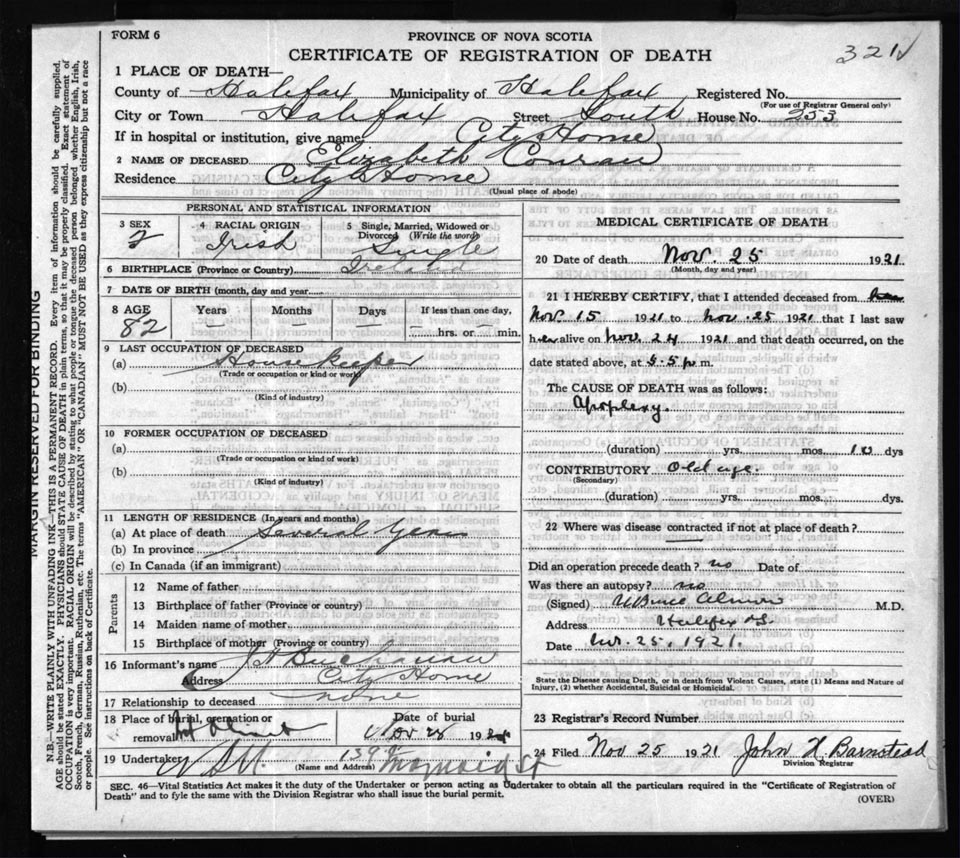 FORM 6
PROVINCE OF NOVA SCOTIA
CERTIFICATE OF REGISTRATION OF DEATH
321
1 PLACE OF DEATH—
County of Halifax Municipality of Halifax Registered No.
(For use of Registrar General only)
City or Town Halifax Street South House No. 253
If in hospital or institution, give name City Home
2 NAME OF DECEASED Elizabeth Conran
Residence City Home
(Usual place of abode)
PERSONAL AND STATISTICAL INFORMATION
3 SEX 4 RACIAL ORIGIN 5 Single, Married, Widowed or Divorced (Write the word)
Irish Single
6 BIRTHPLACE (Province or Country) Ireland
7 DATE OF BIRTH (month, day and year)
8 AGE Years Months Days If less than one day,
82 hrs. or min.
9 LAST OCCUPATION OF DECEASED
(a) House keeper
(Trade or occupation or kind or work)
(b)
(Kind of industry)
10 FORMER OCCUPATION OF DECEASED
(a)
(Trade or occupation or kind of work)
(b)
(Kind of industry)
11 LENGTH OF RESIDENCE (In years and months)
(a) At place of death Several years
(b) In province
(c) In Canada (if an immigrant)
Parents
12 Name of father
13 Birthplace of father (Province or country)
14 Maiden name of mother
15 Birthplace of mother (Province or country)
16 Informant's name Buchanan
Address City Home
17 Relationship to deceased none
18 Place of burial, cremation or removal Date of burial
Nov 28 192
19 Undertaker
(Name and Address)
MEDICAL CERTIFICATE OF DEATH
20 Date of death Nov. 25 1921
(Month, day and year)
21 I HEREBY CERTIFY, that I attended deceased from
Nov. 15 1921 to Nov. 25 1921 that I last saw
her alive on Nov. 24 1921 and that death occurred, on
date stated above, at 5.5 p m.
The CAUSE OF DEATH was as follows:
Apoplexy.
(duration) yrs. mos. 10 dys
CONTRIBUTORY Old age.
(Secondary)
(duration) yrs. mos. dys.
22 Where was disease contracted if not at place of death?
Did an operation precede death? no Date of
Was there an autopsy? no
(Signed) W Bruce Almon M.D.
Address Halifax N.S.
Date Nov. 25, 1921.
State the Disease causing Death, or in death from Violent Causes, state (1) Means and Nature of
Injury, (2) whether Accidental, Suicidal or Homicidal.
23 Registrar's Record Number
24 Filed Nov 25 1921 John H. Barnstead
Division Registrar
SEC. 46—Vital Statistics Act makes it the duty of the Undertaker or person acting as Undertaker to obtain all the particulars required in the "Certificate of Registration of
Death" and to fyle the same with the Division Registrar who shall issue the burial permit.
(OVER)
MARGIN RESERVED FOR BINDING
N.B.—WRITE PLAINLY WITH UNFADING INK—THIS IS A PERMANENT RECORD. Every item of information should be carefully supplied.
AGE should be stated EXACTLY. PHYSICIANS should STATE CAUSE OF DEATH in plain terms, so that it may be properly classified. Exact statement of
OCCUPATION is very important. RACIAL ORIGIN will be described by stating to what people or tongue the deceased person belonged whether English, Irish,
Scotch, French, German, Russian, Ruthenian, etc. The terms "AMERICAN" OR "CANADIAN" MUST NOT BE USED as they express citizenship but not a race
or people. See instructions on back of Certificate.